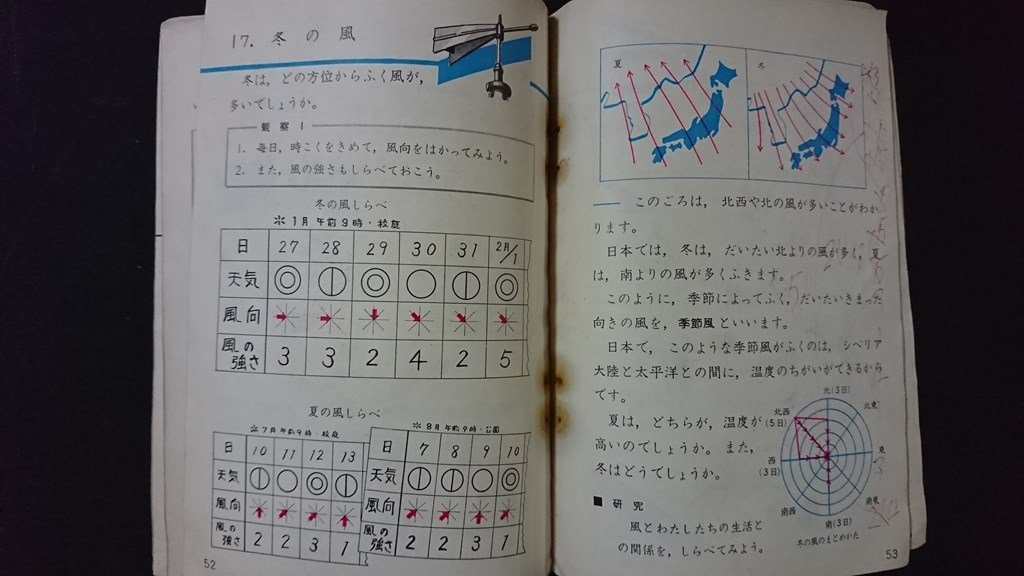 17. 冬の風
冬は，どの方位からふく風が，
多いでしょうか。
観察1
1. 毎日，時こくをきめて，風向をはかってみよう。
2. また，風の強さもしらべておこう。
冬の風しらべ
＊1月 午前9時・校庭
日 27 28 29 30 31 2月/1
天気 ◎ ⦶ ◎ ○ ⦶ ◎
風向
風の強さ 3 3 2 4 2 5
夏の風しらべ
＊7月 午前9時・校庭
日 10 11 12 13
天気 ⦶ ○ ◎ ⦶
風向
風の強さ 2 2 3 1
＊8月 午前9時・公園
日 7 8 9 10
天気 ⦶ ⦶ ○ ◎
風向
風の強さ 2 2 3 1
52
夏
冬
── このごろは，北西や北の風が多いことがわか
ります。
日本では，冬は，だいたい北よりの風が多く，夏
は，南よりの風が多くふきます。
このように，季節によってふく，だいたいきまった
向きの風を，季節風といいます。
日本で，このような季節風がふくのは，シベリア
大陸と太平洋との間に，温度のちがいができるから
です。
夏は，どちらが，温度が
高いのでしょうか。また，
冬はどうでしょうか。
■ 研究
風とわたしたちの生活と
の関係を，しらべてみよう。
北(3日)
北西
(5日)
北東
西
(3日)
東
南西
南東
南(3日)
冬の風のまとめかた
53